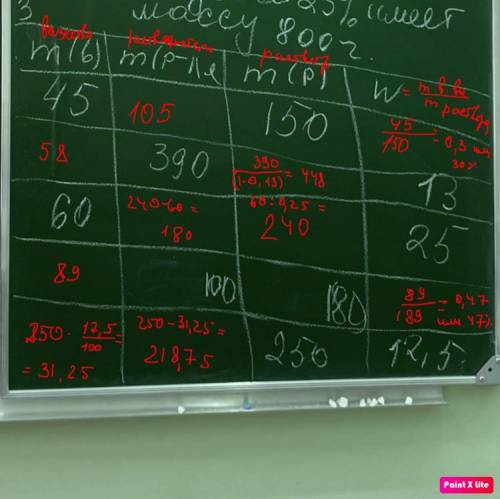 3
25% имеет
массу 800 г.
вещество растворителя раствор
m(в) m(р-ля) m(р) W = m в-ва
m раствора
45 105 150 45/150 = 0,3 или 30%
58 390 390/(1-0,13) = 448 13
60 240-60= 180 60:0,25= 240 25
89 100 189 89/189 = 0,47 или 47%
250 · 12,5/100 = 250-31,25= 250 12,5
= 31,25 218,75
Paint X lite